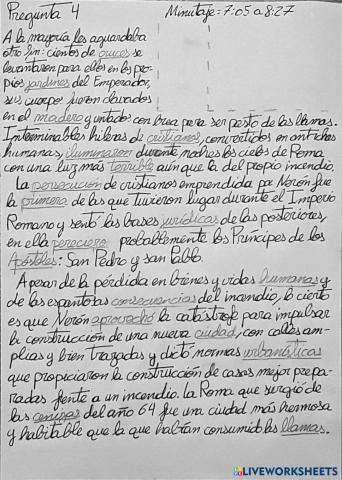 Pregunta 4
Minutaje: 7:05 a 8:27
A la mayoría les aguardaba
otro fin: cientos de cruces se
levantaron para ellos en los pro-
pios jardines del Emperador,
sus cuerpos fueron clavados
en el madero y untados con brea para ser pasto de las llamas.
Interminables hileras de cristianos, convertidos en antorchas
humanas, iluminaron durante noches los cielos de Roma
con una luz más terrible aún que la del propio incendio.
La persecución de cristianos emprendida por Nerón fue
la primera de las que tuvieron lugar durante el Imperio
Romano y sentó las bases jurídicas de las posteriores,
en ella perecieron probablemente los Príncipes de los
Apóstoles: San Pedro y san Pablo.
A pesar de la pérdida en bienes y vidas humanas y
de las espantosas consecuencias del incendio, lo cierto
es que Nerón aprovechó la catástrofe para impulsar
la construcción de una nueva ciudad, con calles am-
plias y bien trazadas y dictó normas urbanísticas
que propiciaron la construcción de casas mejor prepa-
radas frente a un incendio. La Roma que surgió de
las cenizas del año 64 fue una ciudad más hermosa
y habitable que la que habían consumido las llamas.
LIVEWORKSHEETS